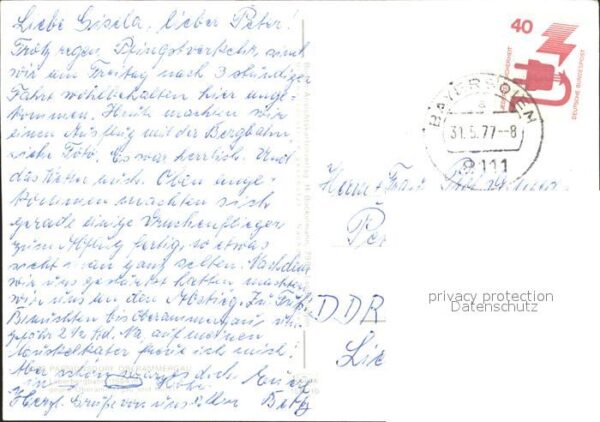 Liebe Gisela, lieber Peter!
Trotz regen Pfingstverkehr sind
wir am Freitag nach 3 stündiger
Fahrt wohlbehalten hier ange-
kommen. Heute machen wir
einen Ausflug mit der Bergbahn,
siehe Foto. Es war herrlich. Und
das Wetter mich. Oben ange-
kommen machten sich
gerade einige Drachenflieger
zum Abflug fertig, so etwas
sieht man ganz selten. Nachdem
wir uns gestärkt hatten machten
wir uns an den Abstieg. Zu Fuß
brauchten bis Oberammergau un-
gefähr 2 1/2 Std. Na auf meinen
Muskelkater freue ich mich!
Aber schön
Herzl. Grüße von uns allen
40
DEUTSCHE BUNDESPOST
BAYERSOIEN
a
31.5.77-8
8111
Herrn + Frau
DDR
privacy protection
Datenschutz
OBERAMMERGAU